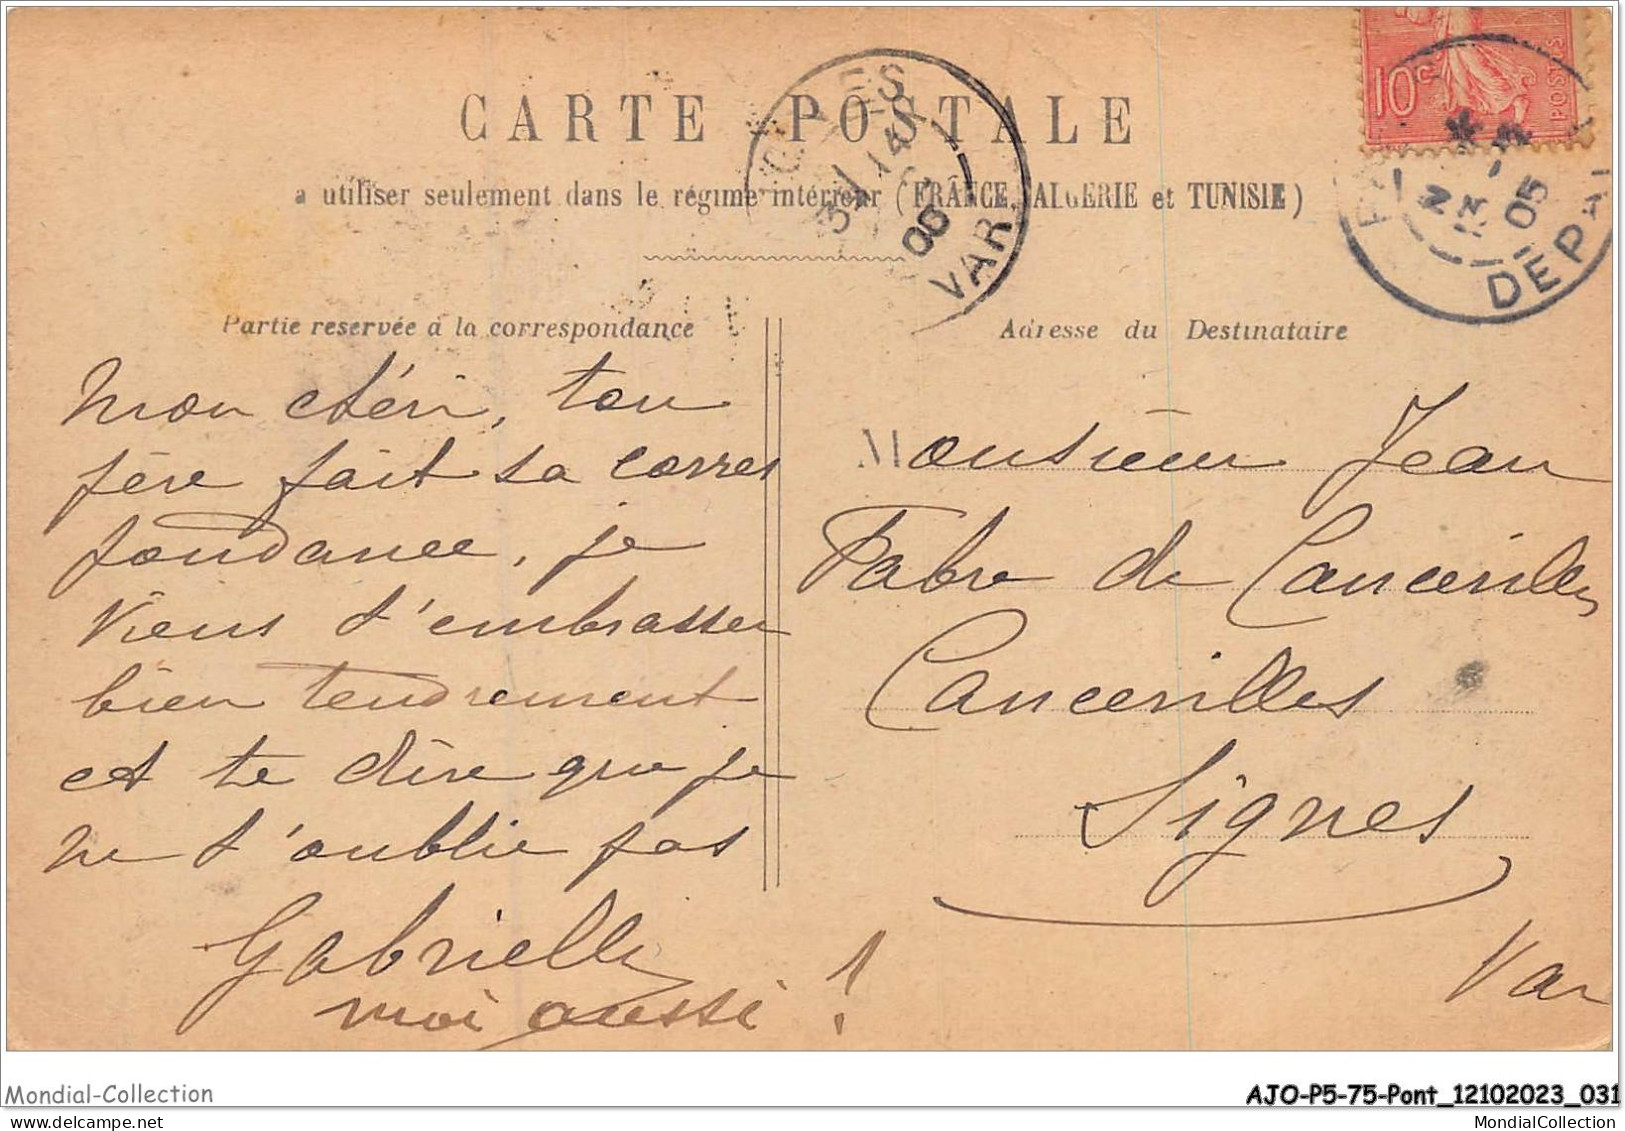 CARTE POSTALE
a utiliser seulement dans le régime intérieur (FRANCE, ALGERIE et TUNISIE)
10c
POSTES
VAR
05
DEPART
Partie reservée à la correspondance
Adresse du Destinataire
Mon chéri, ton
père fait sa corres
pondance, je
viens t'embrasser
bien tendrement
et te dire que je
ne t'oublie pas
Gabrielle
moi aussi !
Monsieur Jean
Fabre de Cancerilles
Cancerilles
Signes
Var
Mondial-Collection
AJO-P5-75-Pont_12102023_031
MondialCollection